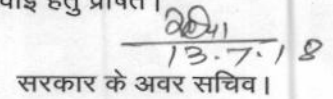 हेतु प्रेषित।
13.7.18
सरकार के अवर सचिव।